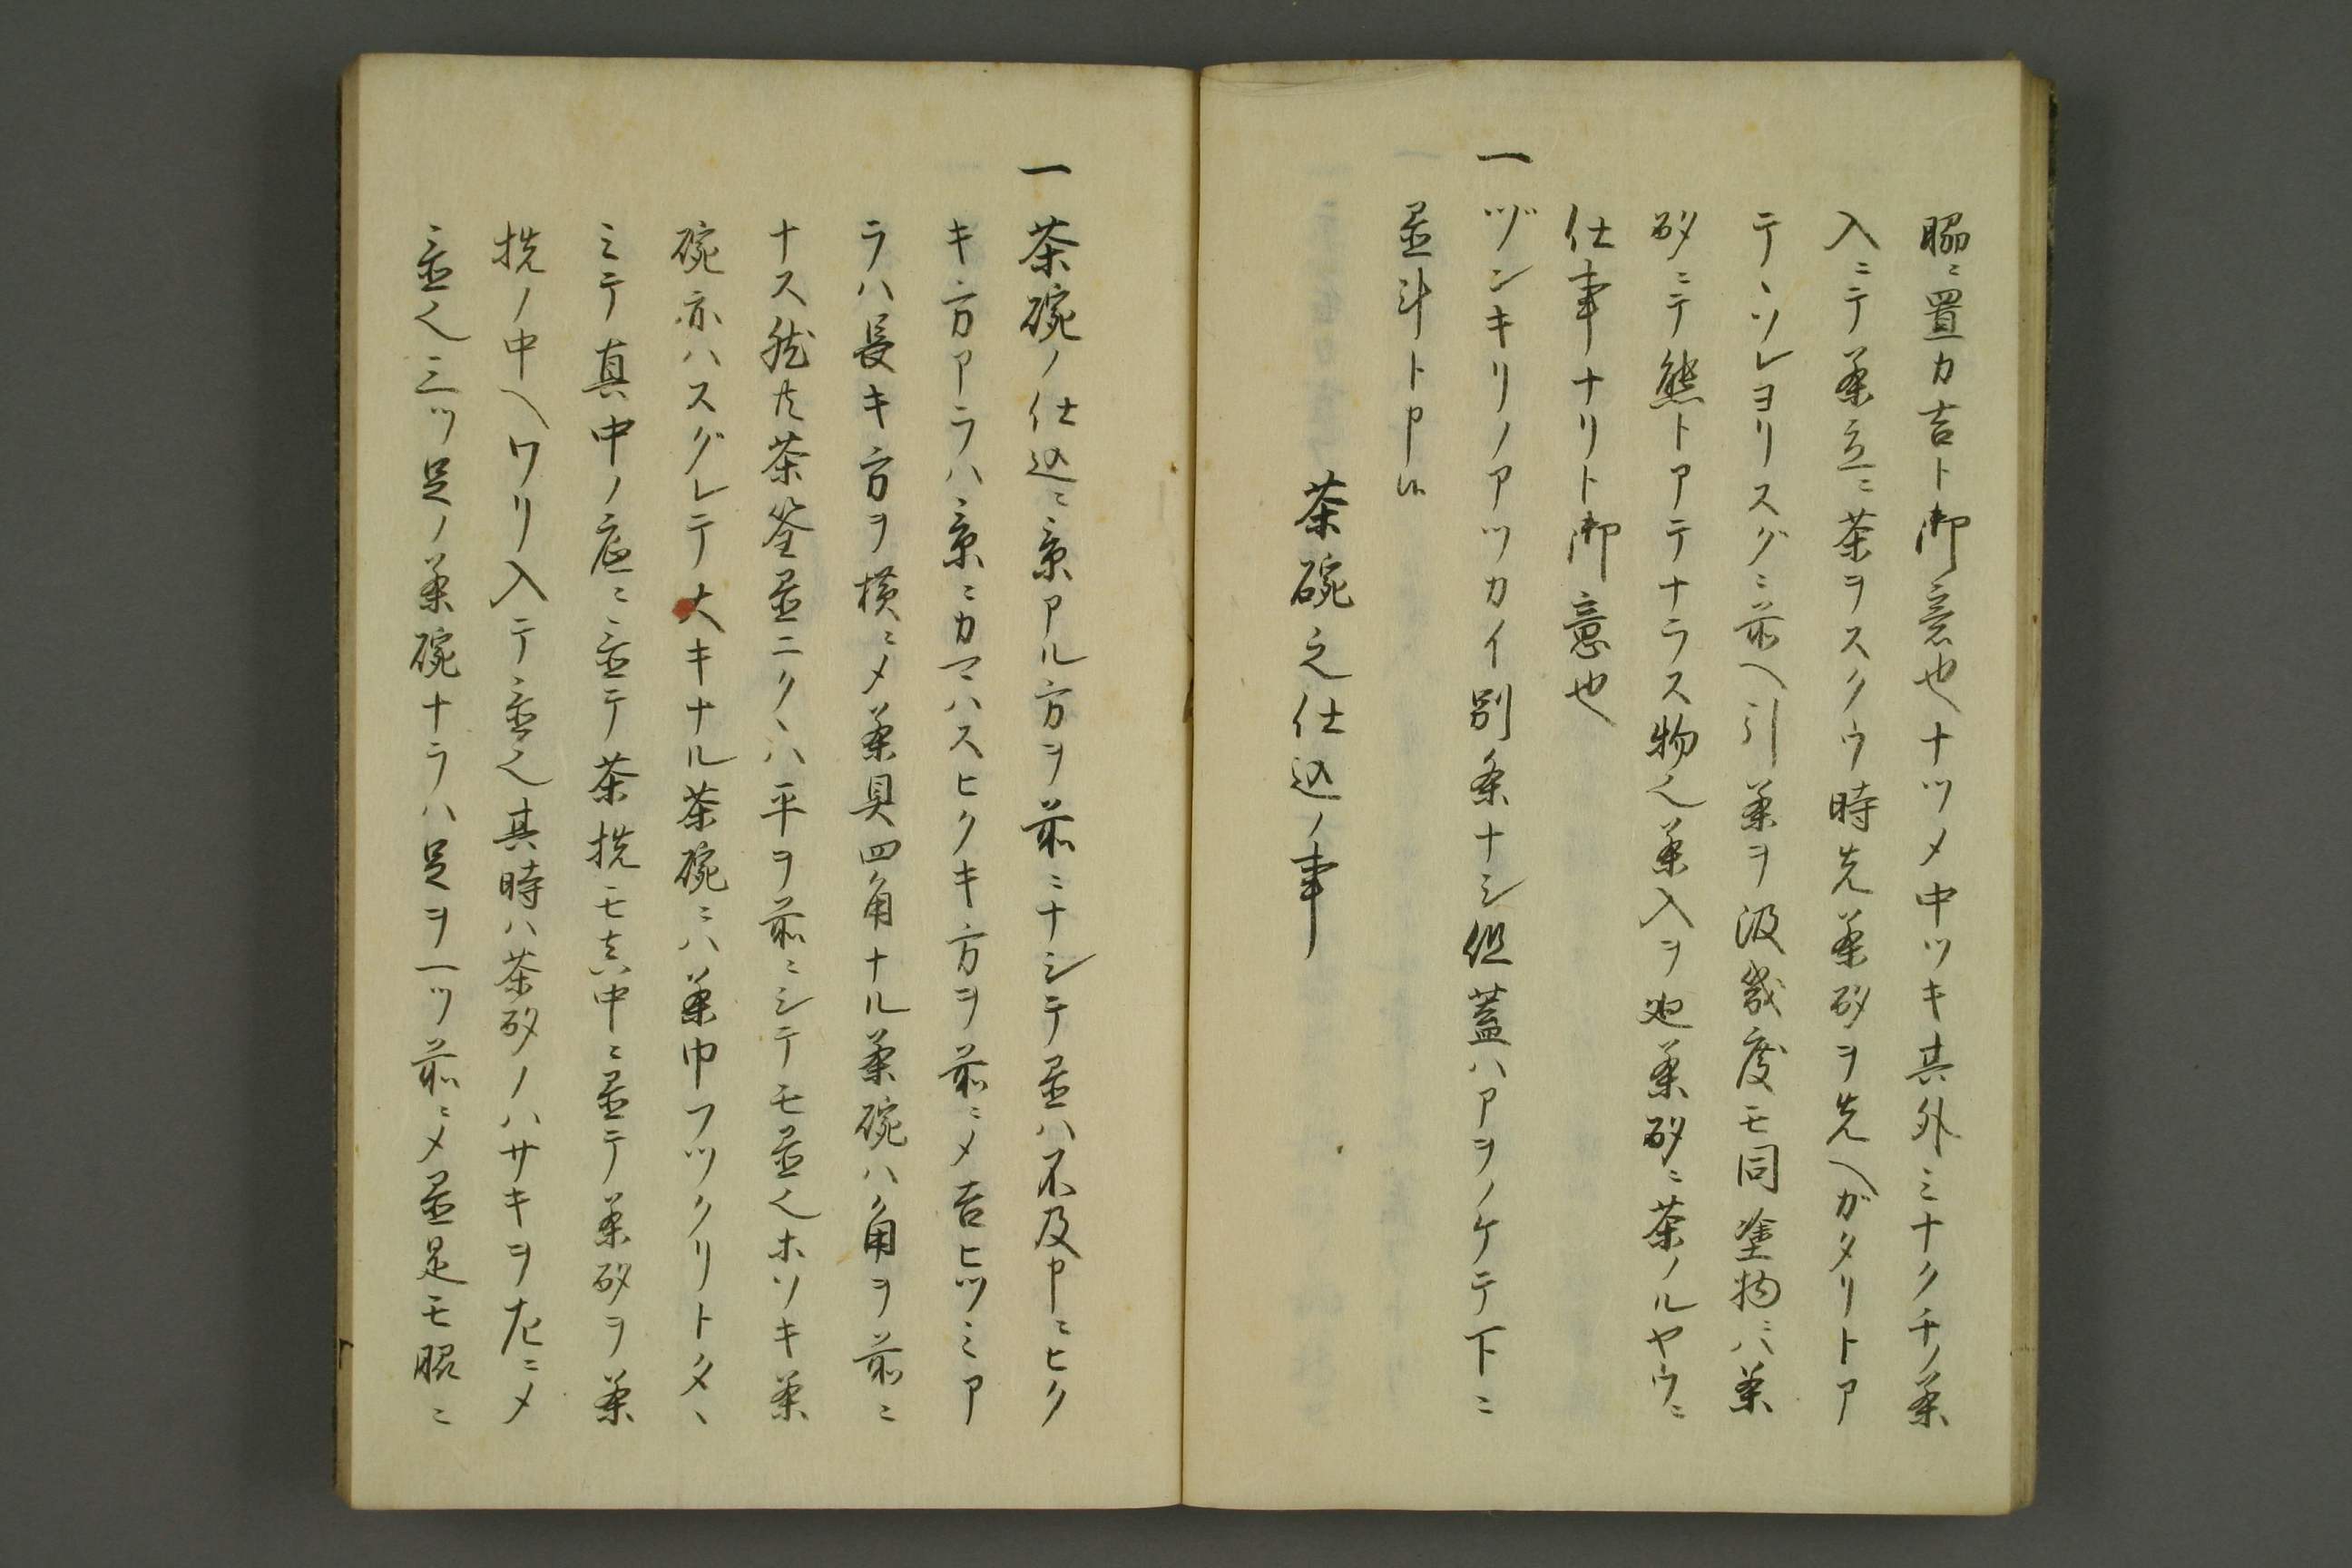 脇ニ置カ吉ト御意也ナツメ中ツキ其外ミナクチノ茶
入ニテ茶立ニ茶ヲスクウ時先茶杓ヲ先ヘガタリトア
テヽソレヨリスグニ前ヘ引茶ヲ汲幾度モ同塗物ニハ茶
杓ニテ熊トアテナラス物也茶入ヲ廻茶杓ニ茶ノルヤウニ
仕事ナリト御意也
一ヅンキリノアツカイ別条ナシ但蓋ハアヲノケテ下ニ
置斗ト申候
茶碗之仕込ノ事
一茶碗ノ仕込ニ景アル方ヲ前ニナシテ置ハ不及申ニヒク
キ方アラハ景ニカマハスヒクキ方ヲ前ニメ吉ヒツミア
ラハ長キ方ヲ横ニメ茶具四角ナル茶碗ハ角ヲ前ニ
ナス然共茶筌置ニクヽハ平ヲ前ニシテモ置也ホソキ茶
碗亦ハスグレテ大キナル茶碗ニハ茶巾フツクリトタヽ
ミテ真中ノ底ニ置テ茶筅モ真中ニ置テ茶杓ヲ茶
筅ノ中ヘワリ入テ置也其時ハ茶杓ノハサキヲ左ニメ
置也三ツ足ノ茶碗ナラハ足ヲ一ツ前ニメ置足モ脇ニ